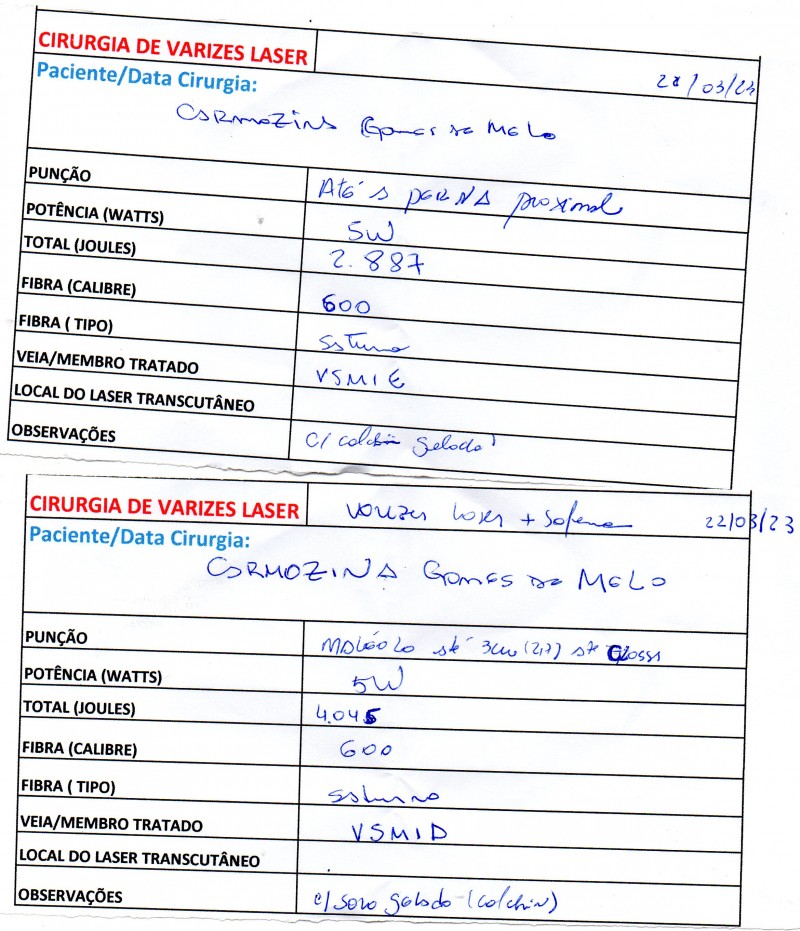 CIRURGIA DE VARIZES LASER
Paciente/Data Cirurgia: /03/23
CARMOZINA Gomes de MELO
PUNÇÃO Até a PERNA proximal
POTÊNCIA (WATTS) 5W
TOTAL (JOULES) 2.887
FIBRA (CALIBRE) 600
FIBRA ( TIPO)
VEIA/MEMBRO TRATADO VSMIE
LOCAL DO LASER TRANSCUTÂNEO
OBSERVAÇÕES c/ gelado
CIRURGIA DE VARIZES LASER Varizes laser + Safena 22/03/23
Paciente/Data Cirurgia:
CARMOZINA GOMES de MELO
PUNÇÃO MALÉOLO até 3cm (2,7) CROSSA
POTÊNCIA (WATTS) 5W
TOTAL (JOULES) 4.045
FIBRA (CALIBRE) 600
FIBRA ( TIPO)
VEIA/MEMBRO TRATADO VSMID
LOCAL DO LASER TRANSCUTÂNEO
OBSERVAÇÕES c/ soro gelado